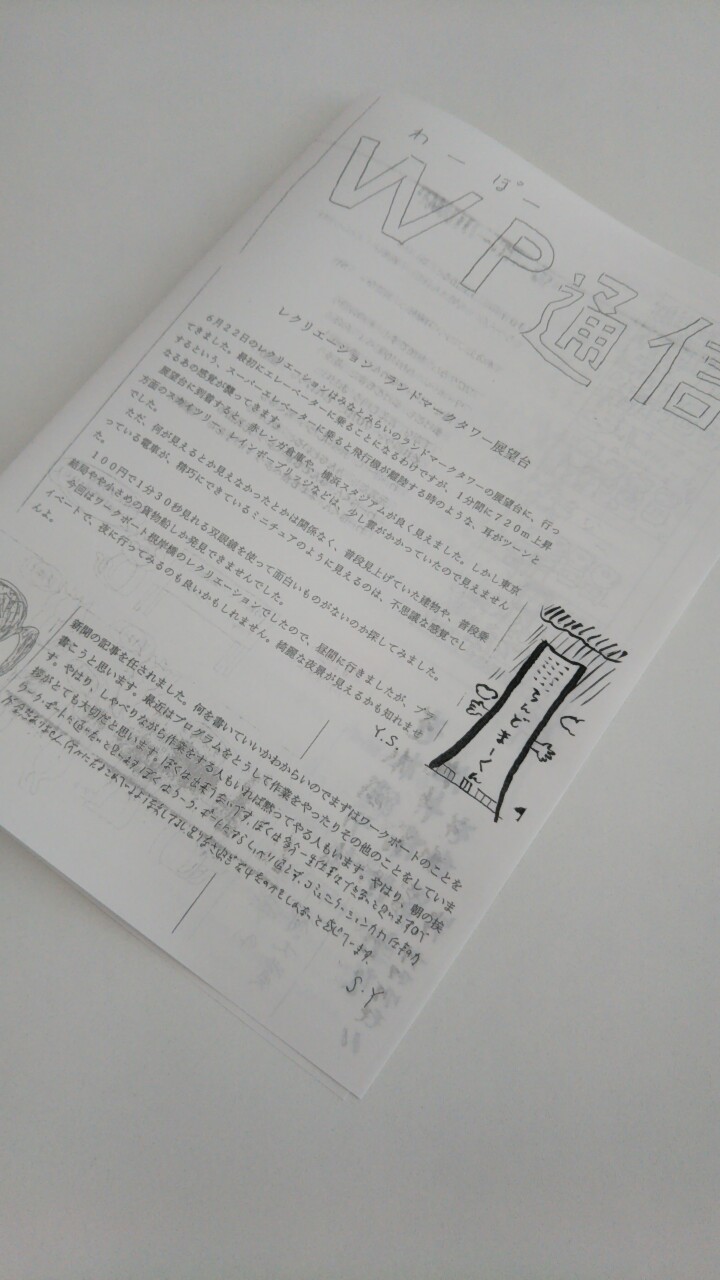 WP通信
レクリエーション ランドマークタワー展望台
6月22日のレクリエーションはみなとみらいのランドマークタワーの展望台に、行っ
てきました。最初にエレーベーターに乗ることになるわけですが、1分間に720m上昇
するという、スーパーエレベーターに乗ると飛行機が離陸する時のような、耳がツーンと
なるあの感覚が襲ってきます。
展望台に到着すると、赤レンガ倉庫や、横浜スタジアムが良く見えました。しかし東京
方面のスカイツリー、レインボーブリッジなどは、少し雲がかかっていたので見えません
でした。
ただ、何が見えるとか見えなかったとかは関係なく、普段見上げていた建物や、普段乗
っている電車が、精巧にできているミニチュアのように見えるのは、不思議な感覚でし
た。
100円で1分30秒見れる双眼鏡を使って面白いものがないのか探してみました。
結局やや小さめの貨物船しか発見できませんでした。
今回はワークポート根岸橋のレクリエーションでしたので、昼間に行きましたが、プラ
イベートで、夜に行ってみるのも良いかもしれません。綺麗な夜景が見えるかも知れませ
んよ。
Y.S.
らんどまーくん
新聞の記事を任されました。何を書いていいかわからないのでまずはワークポートのことを
書こうと思います。最近はプログラムをとうして作業をやったりその他のことをしていま
す。やはり、しゃべりながら作業をする人もいれば黙ってやる人もいます。やはり、朝の挨
拶がとても大切だと思います。
S.Y